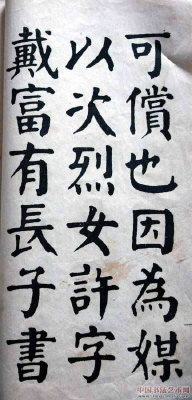 可償也因為媒
以次烈女許字
戴富有長子書
中国书法艺术网